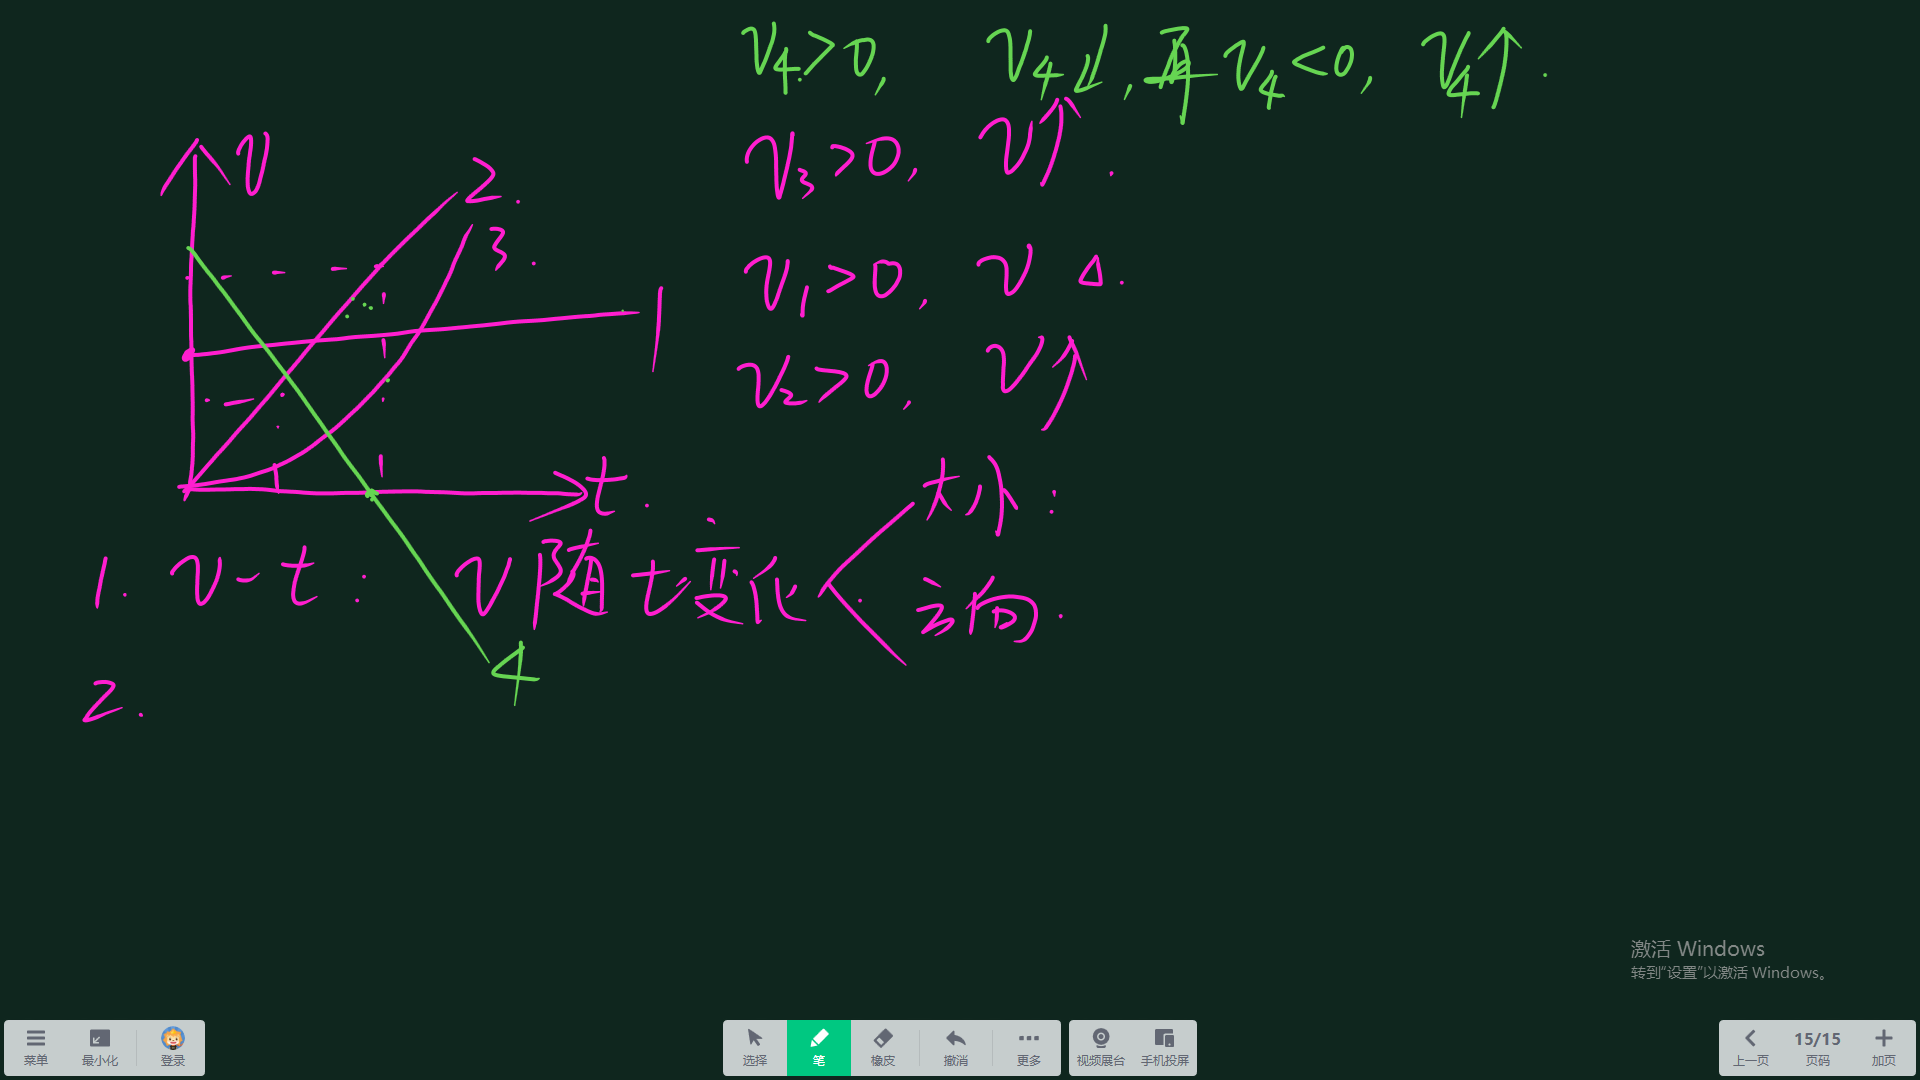 v₄>0, v₄↓, 再 v₄<0, v₄↑.
v₃>0, v↑.
v₁>0, v △.
v₂>0, v↑
v
2.
3.
1
t.
4
1. v-t: v随t变化
大小:
方向.
2.
激活 Windows
转到“设置”以激活 Windows。
菜单 最小化 登录
选择 笔 橡皮 撤消 更多
视频展台 手机投屏
上一页 15/15 页码 加页